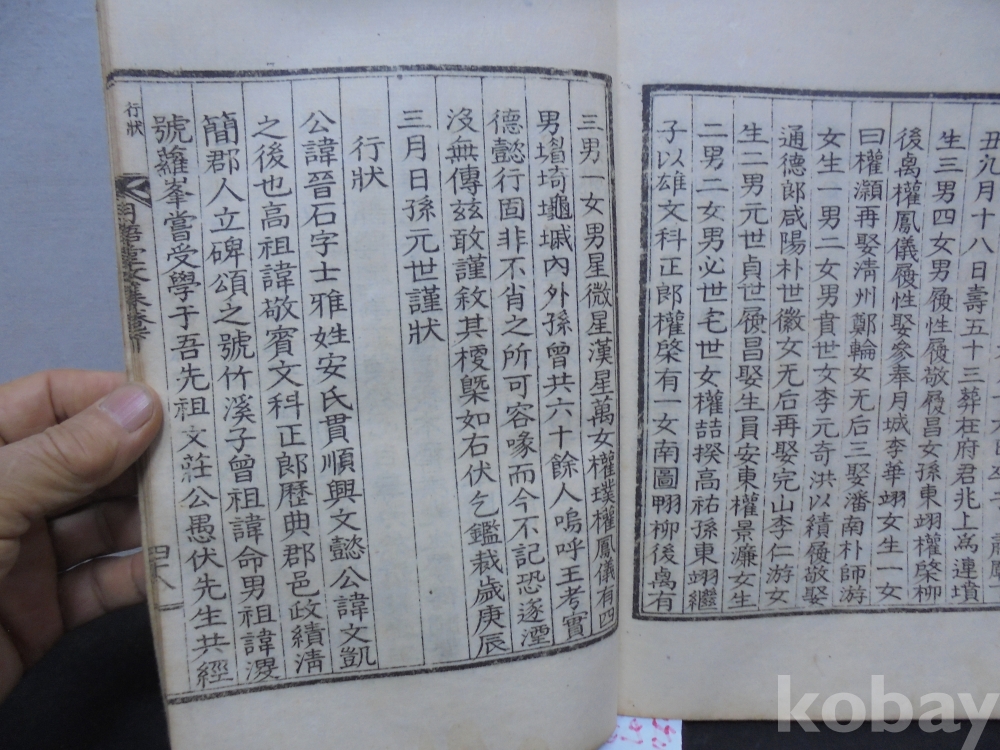 丑九月十八日壽五十三葬在府君兆上爲連墳
生三男四女男履性履敬履昌女孫東翊權棨柳
後禹權鳳儀履性娶參奉月城李華翊女生一女
曰權灝再娶淸州鄭輪女无后三娶潘南朴師游
女生一男二女男貴世女李元奇洪以績履敬娶
通德郎咸陽朴世徽女无后再娶完山李仁游女
生二男元世貞世履昌娶生員安東權景濂女生
二男二女男必世宅世女權喆揆高祐孫東翊繼
子以雄文科正郎權棨有一女南圖翮柳後禹有
三男一女男星微星漢星萬女權璞權鳳儀有四
男墖埼壠墄內外孫曾共六十餘人嗚呼王考實
德懿行固非不肖之所可容喙而今不記恐遂湮
沒無傳玆敢謹敘其梗槩如右伏乞鑑裁歲庚辰
三月日孫元世謹狀
行狀
公諱晉石字士雅姓安氏貫順興文懿公諱文凱
之後也高祖諱敬賓文科正郎歷典郡邑政績淸
簡郡人立碑頌之號竹溪子曾祖諱命男祖諱濅
號蘿峯嘗受學于吾先祖文莊公愚伏先生共經
行狀
四十八
kobay